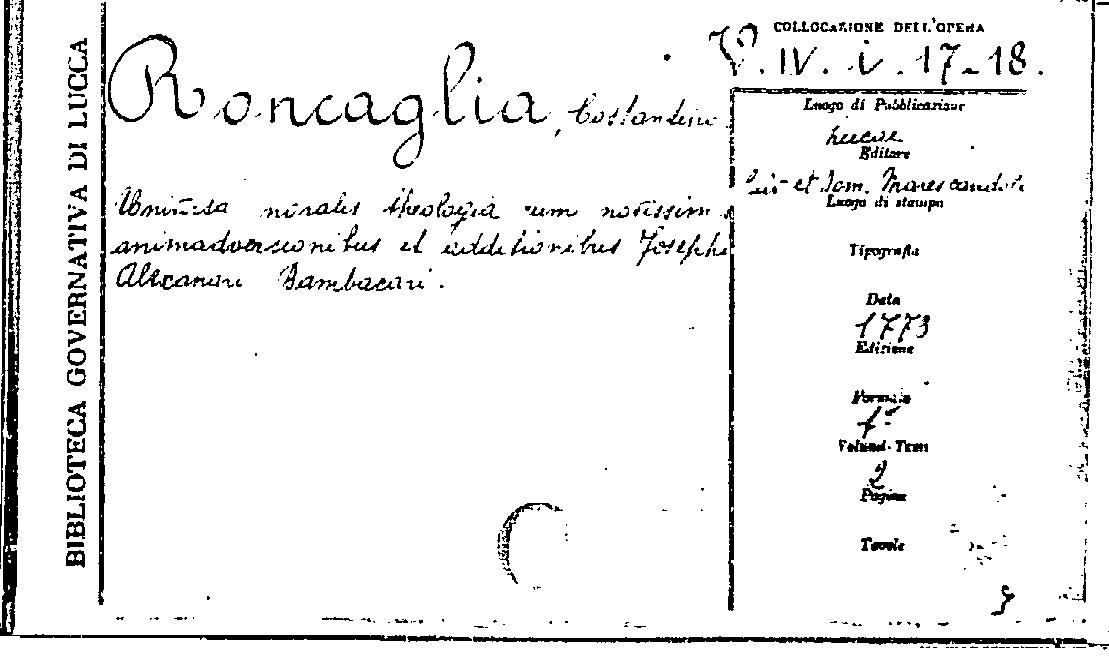 BIBLIOTECA GOVERNATIVA DI LUCCA
Roncaglia, Costantino
Universa moralis theologia cum novissimis
animadversionibus et additionibus Josephi
Alexandri Bambacari.
COLLOCAZIONE DELL'OPERA
V. IV. i. 17-18.
Luogo di Pubblicazione
Lucae
Editore
et Dom. Marescandoli
Luogo di stampa
Tipografia
Data
1773
Edizione
Formato
Volumi-Tomi
2
Pagine
Tavole